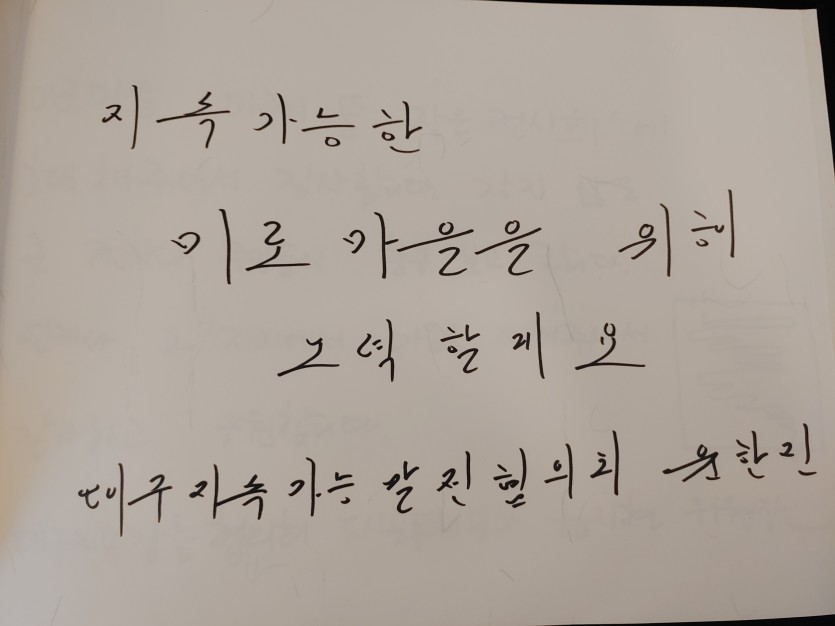 지속 가능한
미로 마을을 위해
노력할게요
대구지속가능발전협의회 원한민